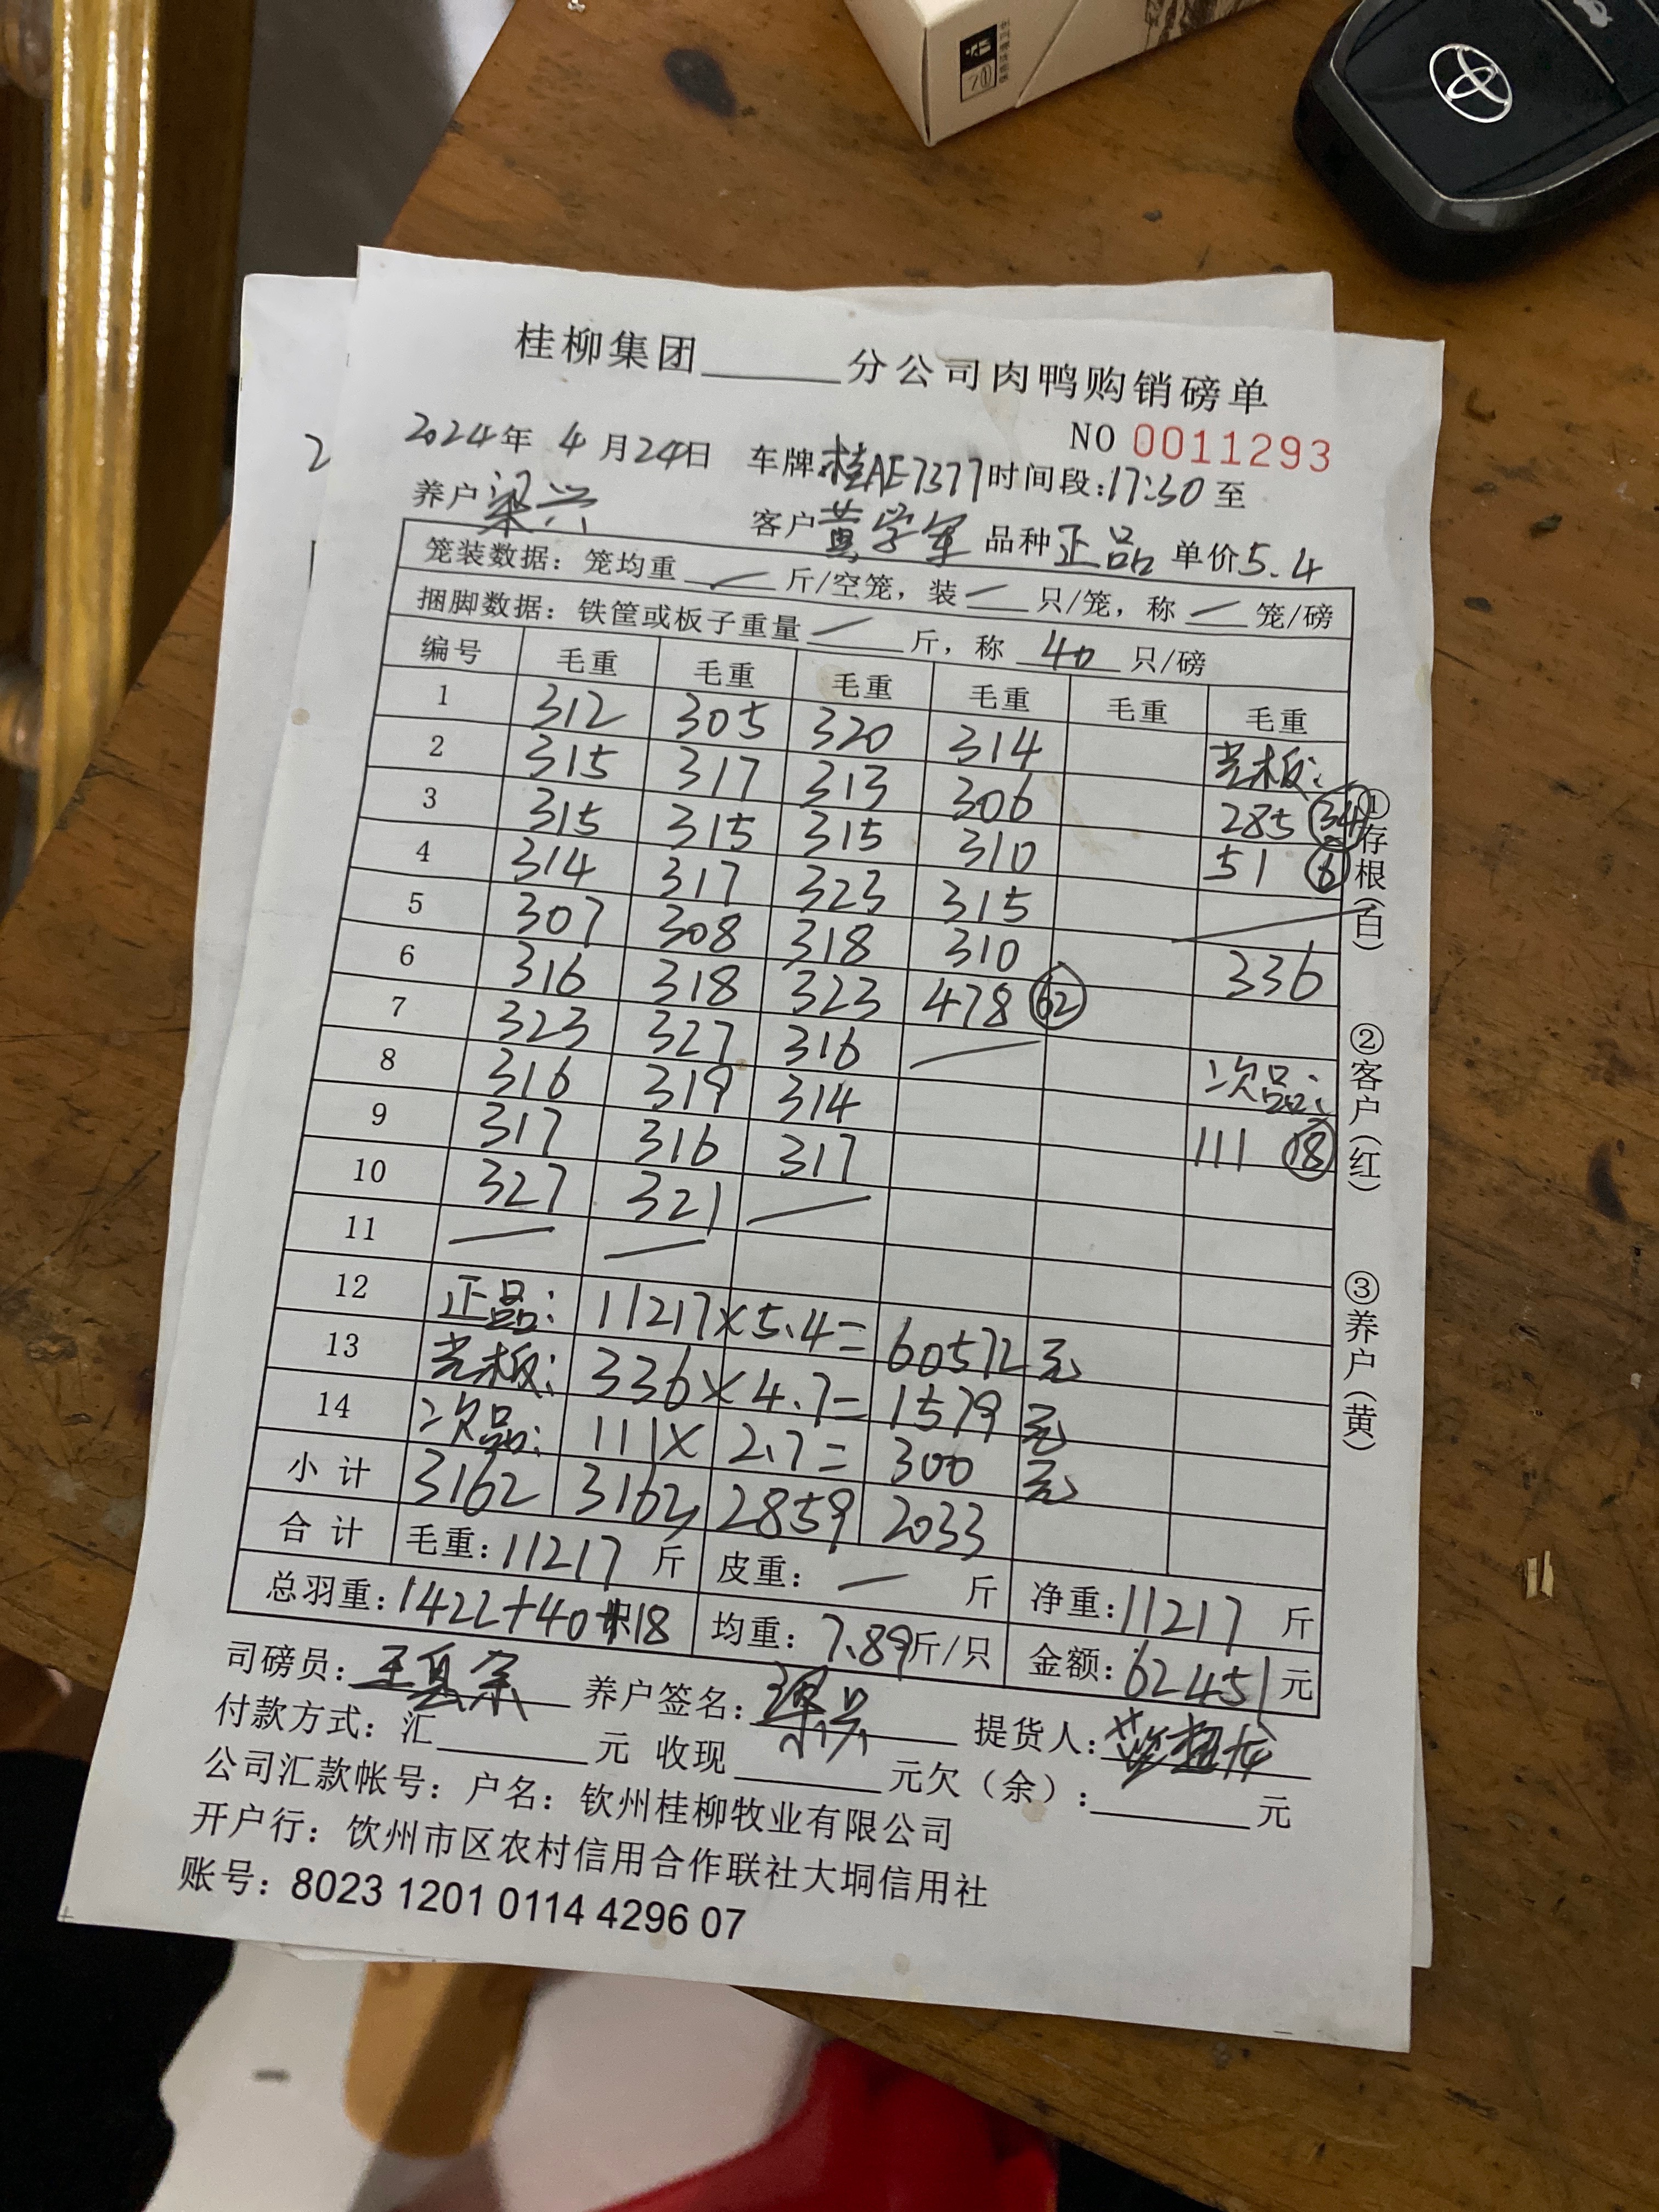 桂柳集团______分公司肉鸭购销磅单
NO 0011293
2024年 4月24日 车牌:桂AE7377 时间段:17:30 至
养户 梁兴 客户 黄学军 品种 正品 单价 5.4
笼装数据：笼均重 / 斤/空笼，装 / 只/笼，称 / 笼/磅
捆脚数据：铁筐或板子重量 / 斤，称 40 只/磅
编号 毛重 毛重 毛重 毛重 毛重 毛重
1 312 305 320 314 光板:
2 315 317 313 306 285 34
3 315 315 315 310 51 6
4 314 317 323 315 /
5 307 308 318 310 336
6 316 318 323 478 62
7 323 327 316 / 次品:
8 316 319 314 111 18
9 317 316 317
10 327 321 /
11 / /
12 正品: 11217×5.4= 60572元
13 光板: 336×4.7= 1579元
14 次品: 111×2.7= 300元
小计 3162 3162 2859 2033
合计 毛重:11217 斤 皮重: / 斤 净重:11217 斤
总羽重:1422+40+18 均重:7.89斤/只 金额:62451元
司磅员: 养户签名:梁兴 提货人:
付款方式：汇______元 收现______元欠（余）:______元
公司汇款帐号：户名：钦州桂柳牧业有限公司
开户行：饮州市区农村信用合作联社大垌信用社
账号：8023 1201 0114 4296 07
①存根(白) ②客户(红) ③养户(黄)
2